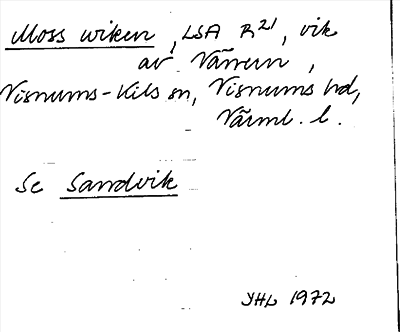 Moss wiken, LSA R21, vik
av Vänern,
Visnums-Kils sn, Visnums hd,
Värml. l.
Se Sandvik
YHL 1972